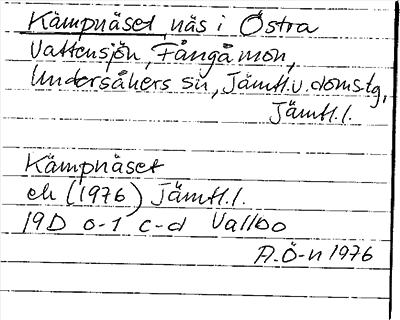 Kämpnäset, näs i Östra
Vattensjön, Fångåmon,
Undersåkers sn, Jämtl.v.domstg,
Jämtl.l.
Kämpnäset
ek (1976) Jämtl.l.
19D 0-1 c-d Vallbo
A.Ö-n 1976